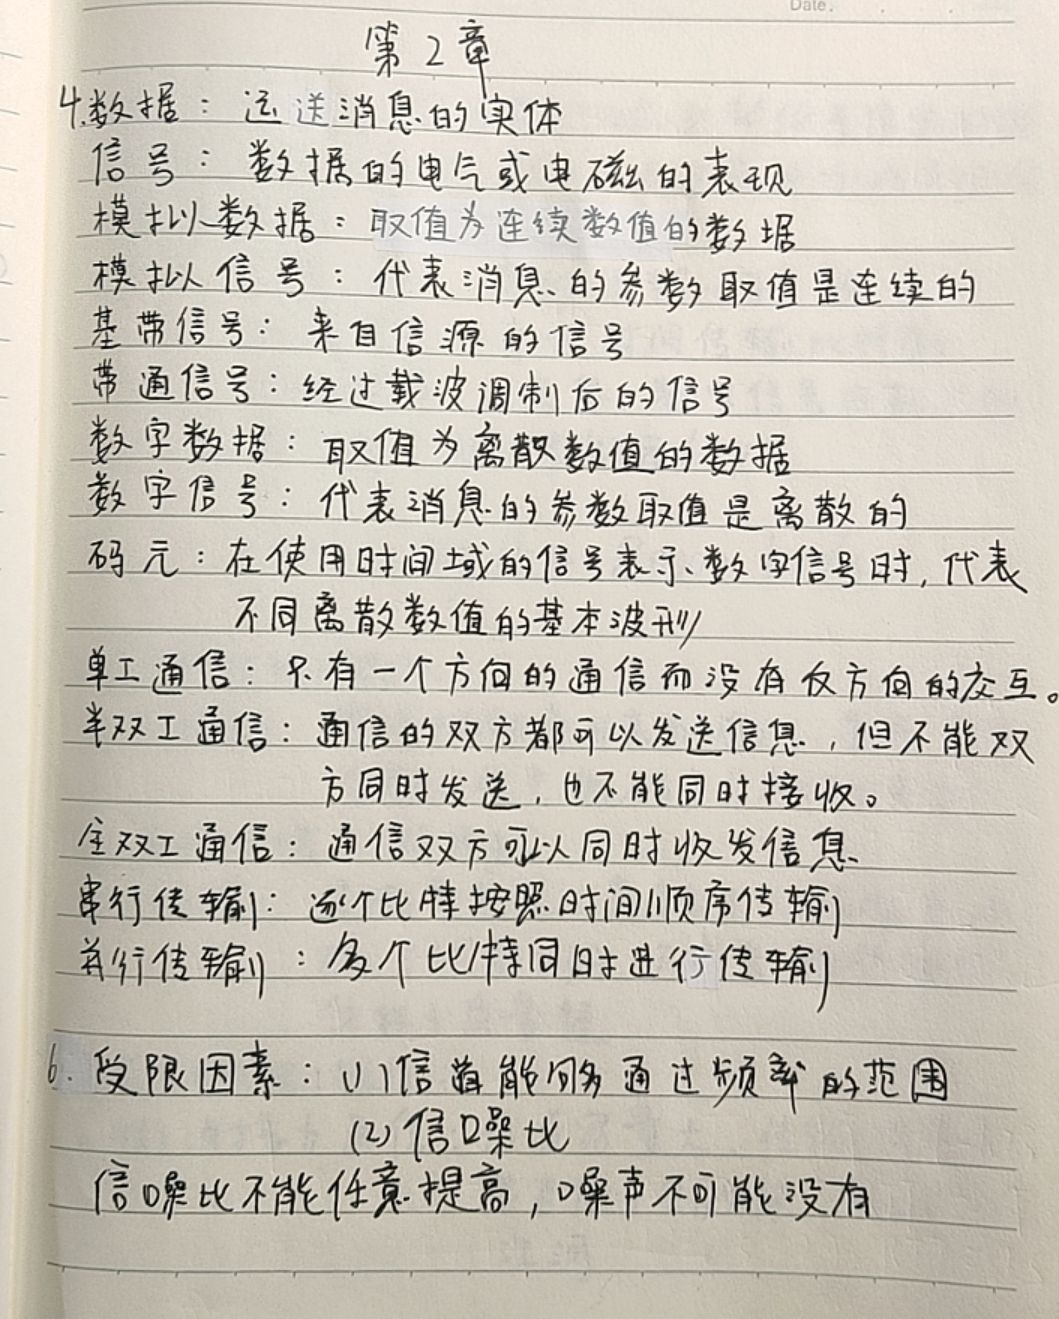 Date.
第2章
4.数据：运送消息的实体
信号：数据的电气或电磁的表现
模拟数据：取值为连续数值的数据
模拟信号：代表消息的参数取值是连续的
基带信号：来自信源的信号
带通信号：经过载波调制后的信号
数字数据：取值为离散数值的数据
数字信号：代表消息的参数取值是离散的
码元：在使用时间域的信号表示数字信号时，代表
不同离散数值的基本波形
单工通信：只有一个方向的通信而没有反方向的交互。
半双工通信：通信的双方都可以发送信息，但不能双
方同时发送，也不能同时接收。
全双工通信：通信双方可以同时收发信息
串行传输：逐个比特按照时间顺序传输
并行传输：多个比特同时进行传输
6.受限因素：(1)信道能够通过频率的范围
(2)信噪比
信噪比不能任意提高，噪声不可能没有